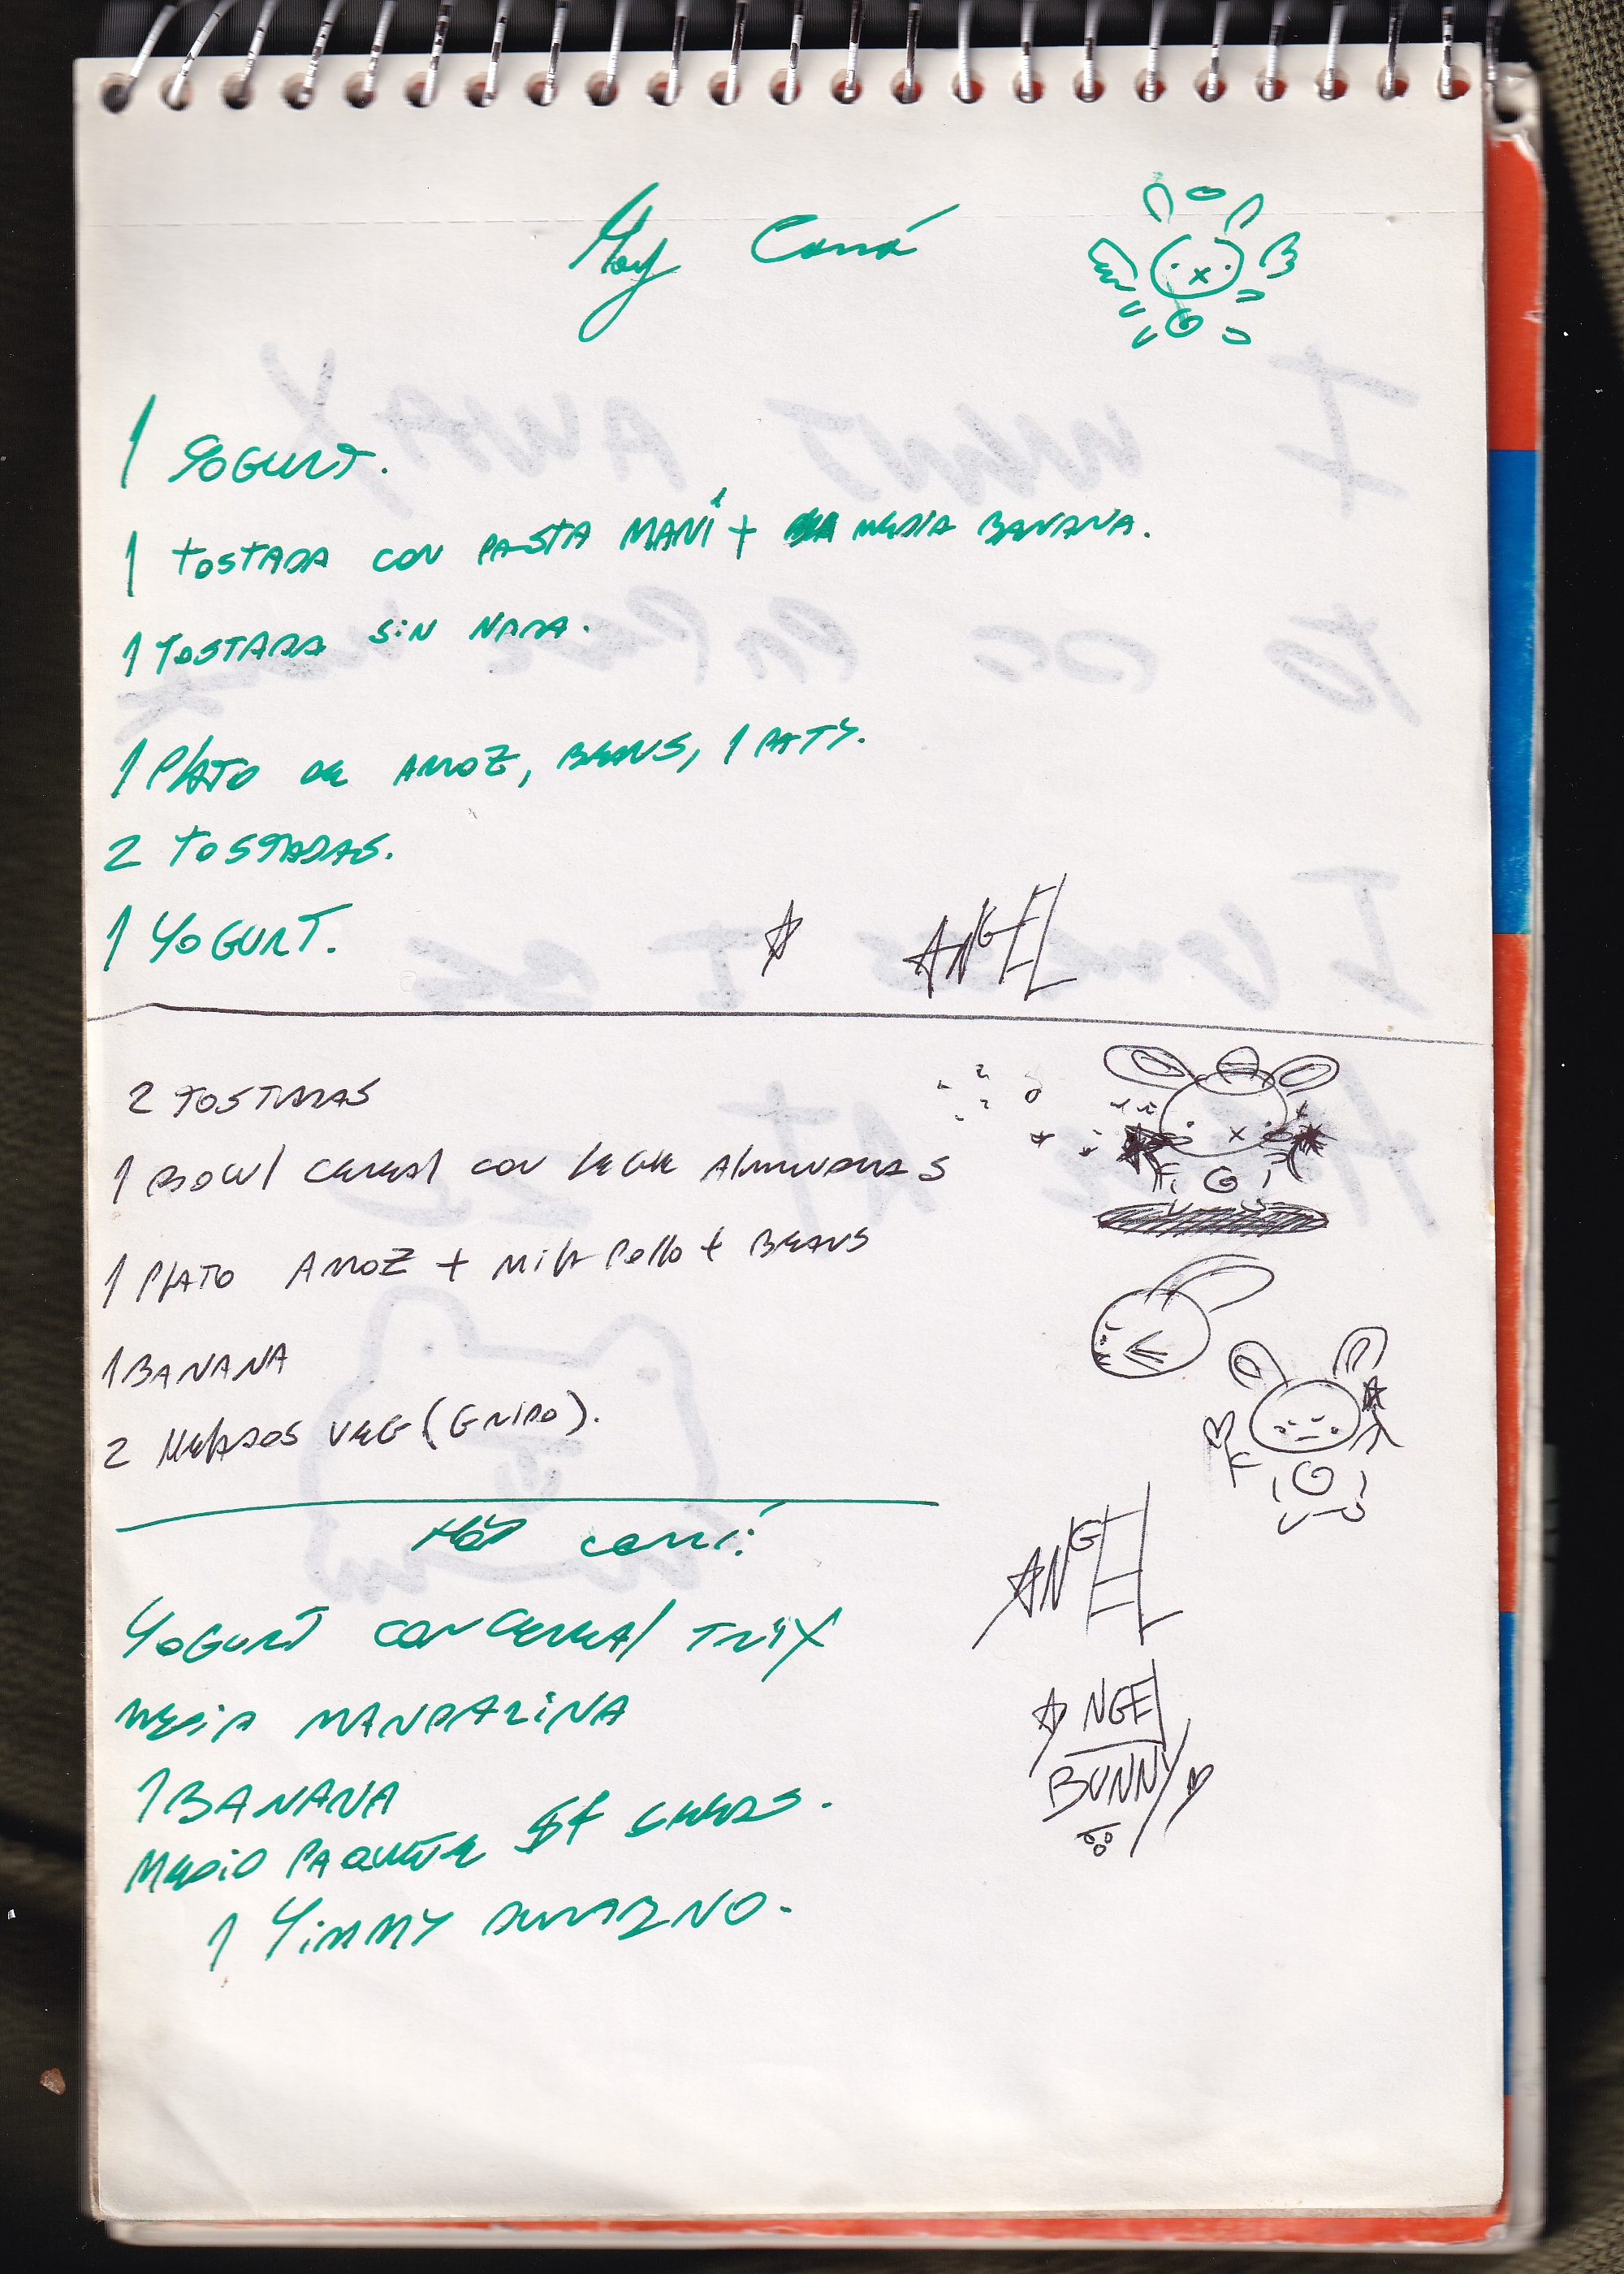 Hoy Comí
1 YOGURT.
1 TOSTADA CON PASTA MANÍ + MEDIA BANANA.
1 TOSTADA SIN NADA.
1 PLATO DE ARROZ, BEANS, 1 PATY.
2 TOSTADAS.
1 YOGURT.
ANGEL
2 TOSTADAS
1 BOWL CEREAL CON LECHE ALMENDRAS
1 PLATO ARROZ + MILA POLLO + BEANS
1 BANANA
2 HELADOS VEG (GRIDO).
ANGEL
HOY COMÍ:
YOGURT CON CEREAL TRIX
MEDIA MANDARINA
1 BANANA
MEDIO PAQUETE
1 YIMMY DURAZNO.
ANGEL
BUNNY